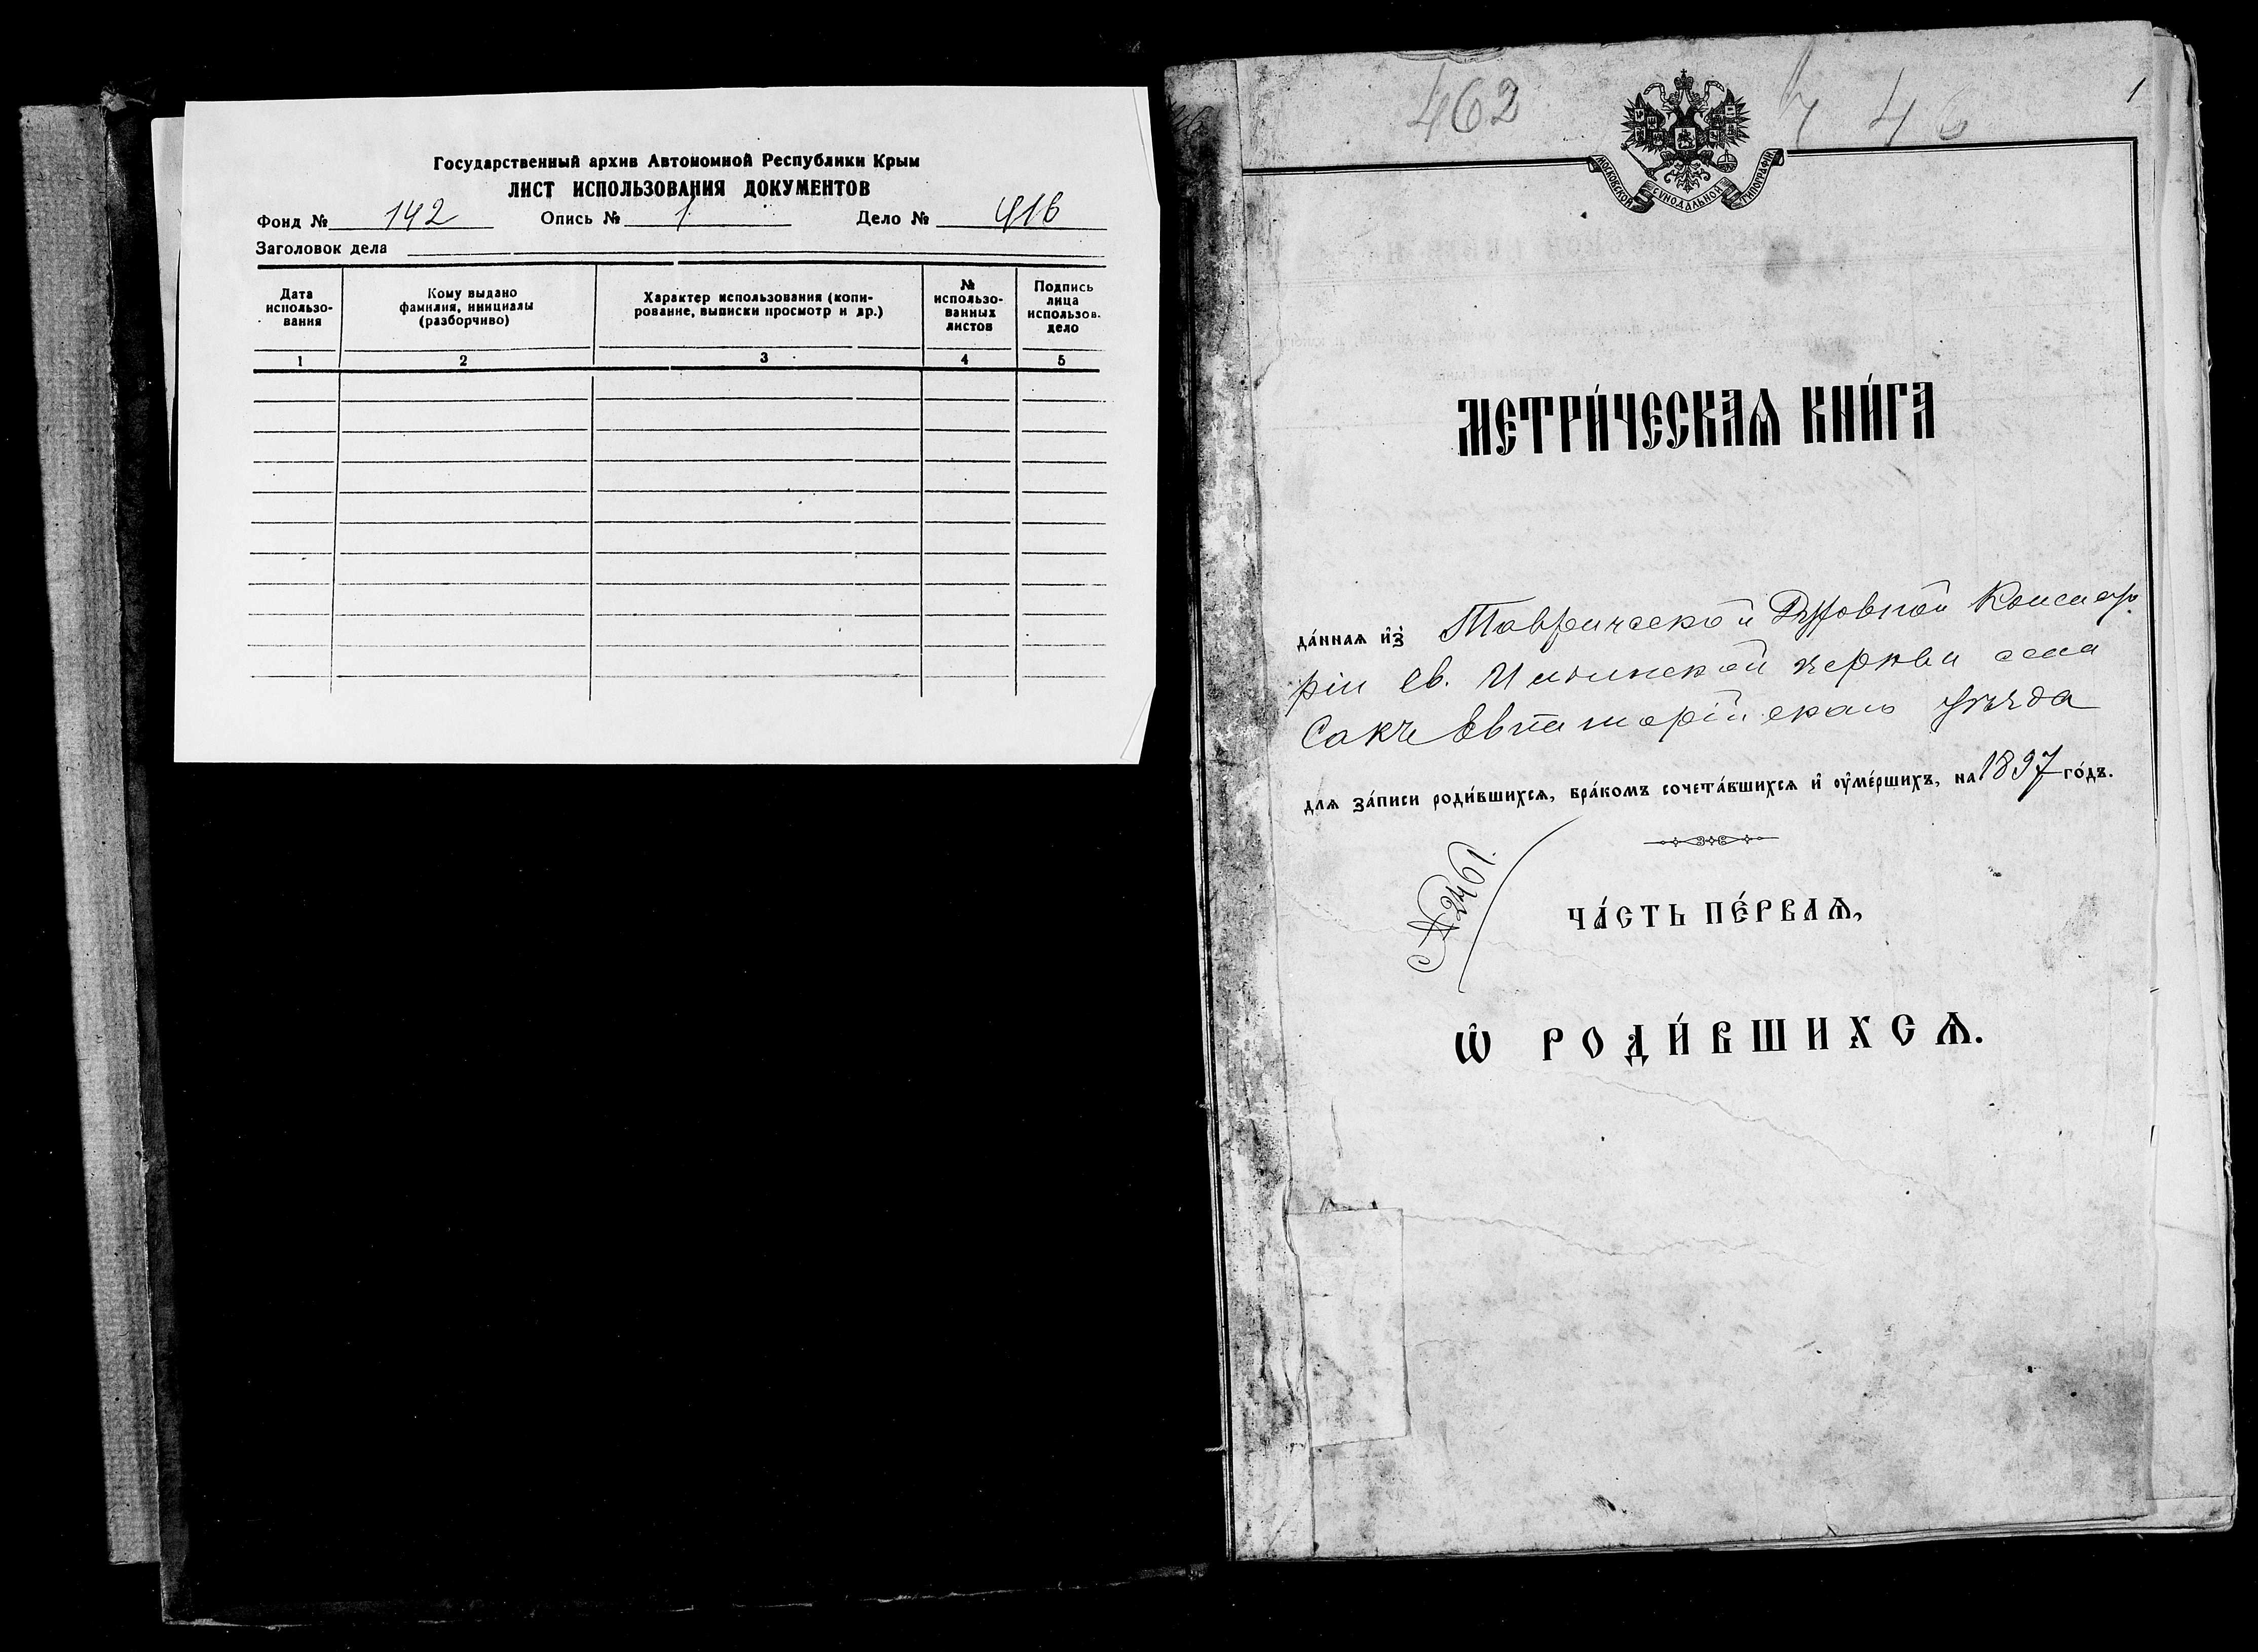 Государственный архив Автономной Республики Крым
ЛИСТ ИСПОЛЬЗОВАНИЯ ДОКУМЕНТОВ
Фонд № 142 Опись № 1 Дело №
Заголовок дела
Дата использо-вания
Кому выдано фамилия, инициалы (разборчиво)
Характер использования (копи-рование, выписки просмотр и др.)
№ использо-ванных листов
Подпись лица использов. дело
1 2 3 4 5
462
46
1
МОСКОВСКОЙ СѴНОДАЛЬНОЙ ТИПОГРАФІИ
МЕТРИ́ЧЕСКАѦ КНИ́ГА
да́ннаѧ и҆з̾ Таврической Духовной Консисто
ріи св. Ильинской церкви села
Сакъ Евпаторійскаго уѣзда
для за́писи роди́вшихсѧ, бра́комъ сочета́вшихсѧ и҆ оу҆ме́ршихъ, на 1897 го́дъ.
ЧА́СТЬ ПЕ́РВАѦ,
Ѡ҆ РОДИ́ВШИХСѦ.